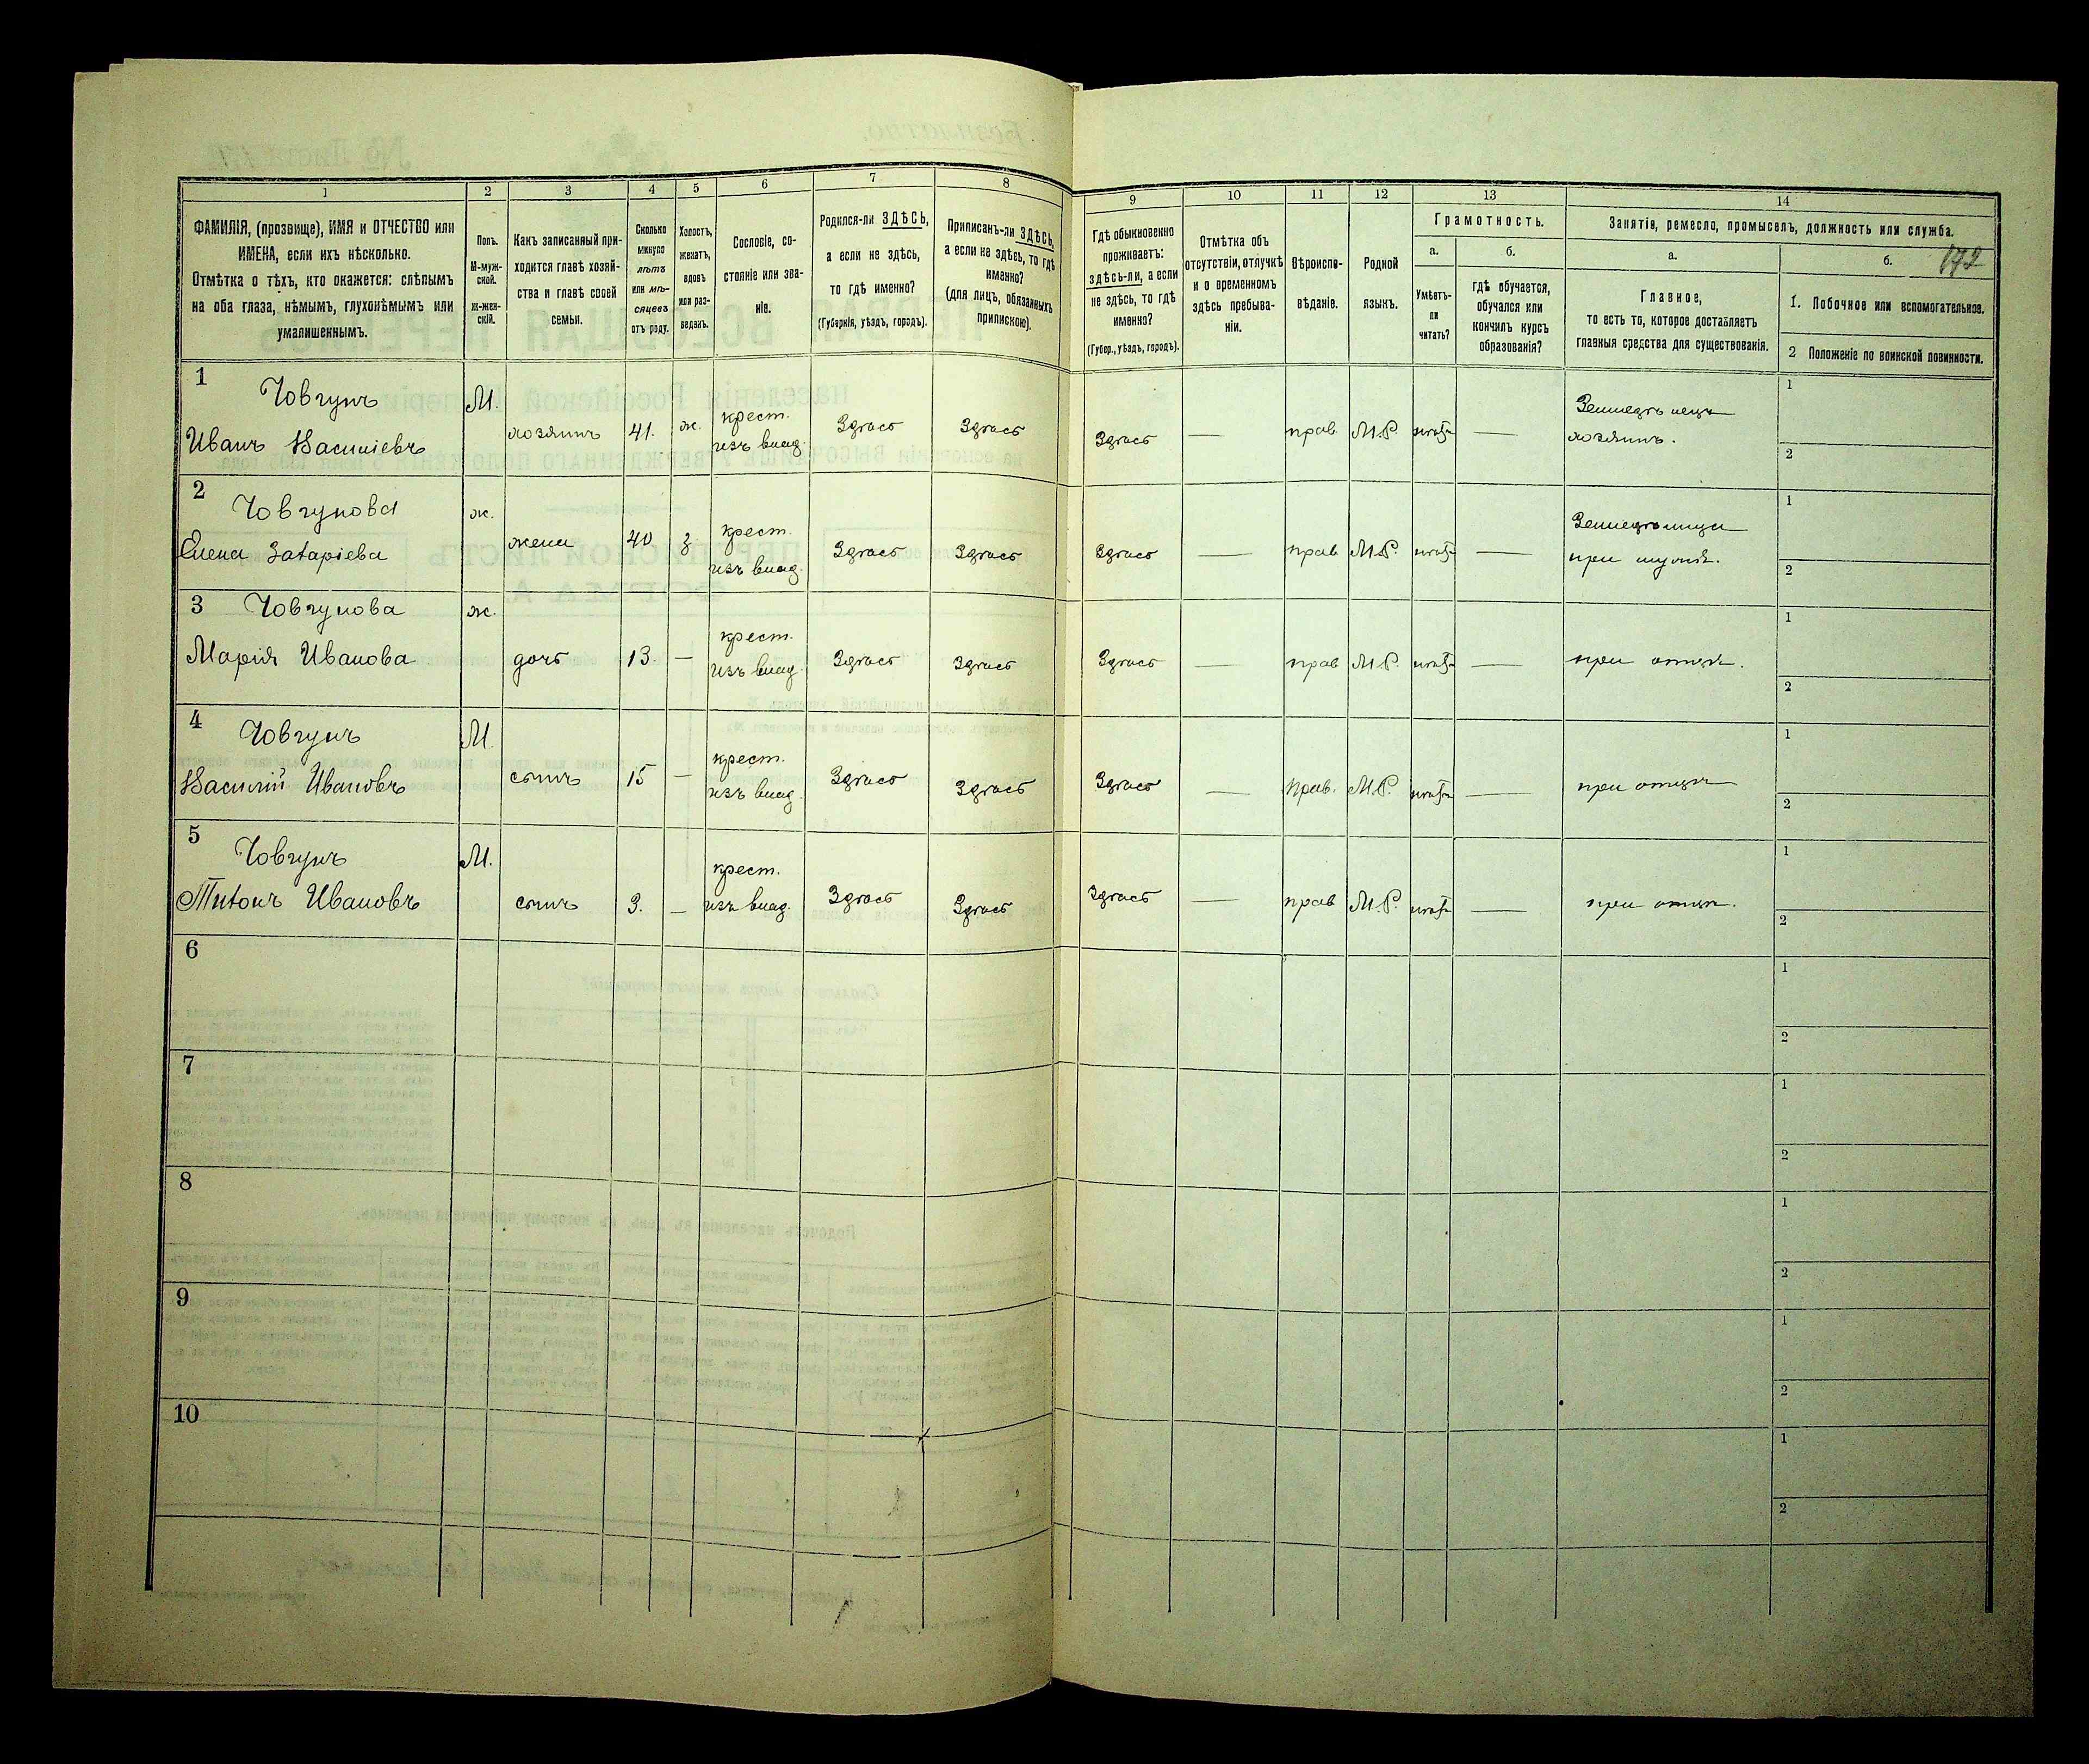 1 2 3 4 5 6 7 8 9 10 11 12 13 14
ФАМИЛІЯ, (прозвище), ИМЯ и ОТЧЕСТВО или
ИМЕНА, если ихъ нѣсколько.
Отмѣтка о тѣхъ, кто окажется: слѣпымъ
на оба глаза, нѣмымъ, глухонѣмымъ или
умалишеннымъ.
Полъ.
М-муж-
ской.
Ж-жен-
скій.
Какъ записанный при-
ходится главѣ хозяй-
ства и главѣ своей
семьи.
Сколько
минуло
лѣтъ
или мѣ-
сяцевъ
отъ роду.
Холостъ,
женатъ,
вдовъ
или раз-
веденъ.
Сословіе, со-
стояніе или зва-
ніе.
Родился-ли ЗДѢСЬ,
а если не здѣсь,
то гдѣ именно?
(Губернія, уѣздъ, городъ).
Приписанъ-ли ЗДѢСЬ,
а если не здѣсь, то гдѣ
именно?
(для лицъ, обязанныхъ
припискою).
Гдѣ обыкновенно
проживаетъ:
здѣсь-ли, а если
не здѣсь, то гдѣ
именно?
(Губер., уѣздъ, городъ).
Отмѣтка объ
отсутствіи, отлучкѣ
и о временномъ
здѣсь пребыва-
ніи.
Вѣроиспо-
вѣданіе.
Родной
языкъ.
Грамотность.
а.
Умѣетъ-
ли
читать?
б.
гдѣ обучается,
обучался или
кончилъ курсъ
образованія?
Занятія, ремесло, промыселъ, должность или служба.
а.
Главное,
то есть то, которое доставляетъ
главныя средства для существованія.
б.
192
1. Побочное или вспомогательное.
2 Положеніе по воинской повинности.
1 Човгунъ М. крест. Земледѣлецъ 1
Иванъ Василіевъ хозяинъ 41. ж. изъ влад. Здѣсь Здѣсь Здѣсь — прав. М.Р. нѣтъ — хозяинъ. 2
2 Човгунова ж. крест. Земледѣлица 1
Елена Захаріева жена 40 з изъ влад. Здѣсь Здѣсь Здѣсь — прав М.Р. нѣтъ — при мужѣ. 2
3 Човгунова ж. крест. 1
Марія Иванова дочь 13. — изъ влад. Здѣсь Здѣсь Здѣсь — прав М.Р. нѣтъ — при отцѣ. 2
4 Човгунъ М. крест. 1
Василій Ивановъ сынъ 15 — изъ влад. Здѣсь Здѣсь Здѣсь — прав. М.Р. нѣтъ — при отцѣ 2
5 Човгунъ М. крест. 1
Титонъ Ивановъ сынъ 3. — изъ влад. Здѣсь Здѣсь Здѣсь — прав М.Р. нѣтъ — при отцѣ. 2
6 1
2
7 1
2
8 1
2
9 1
2
10 1
2